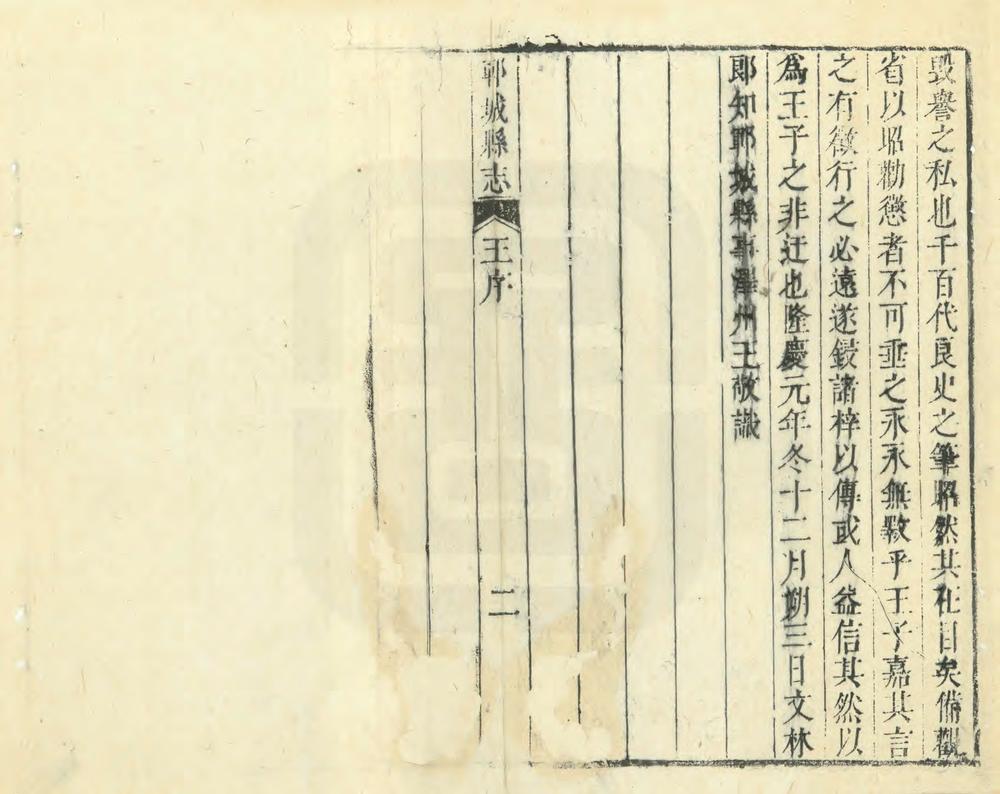 毀譽之私也千百代良史之筆昭然其在目矣備觀
省以昭勸懲者不可垂之永永無斁乎王子嘉其言
之有徵行之必遠遂鋟諸梓以傳或人益信其然以
爲王子之非迂也隆慶元年冬十二月朔三日文林
郎知鄆城縣事澤州王敬識
鄆城縣志 王序 二